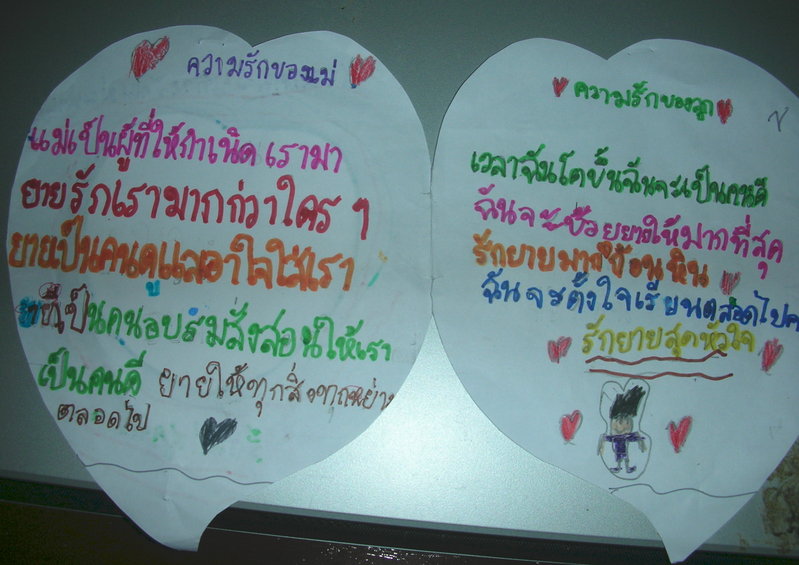 ความรักของแม่
แม่เป็นผู้ที่ให้กำเนิด เรามา
ยายรักเรามากกว่าใคร ๆ
ยายเป็นคนดูแลเอาใจใส่เรา
ยายเป็นคนอบรมสั่งสอนให้เรา
เป็นคนดี ยายให้ทุกสิ่งทุกอย่าง
ตลอดไป
ความรักของลูก
เวลาฉันโตขึ้นฉันจะเป็นคนดี
ฉันจะช่วยยายให้มากที่สุด
รักยายมาก
ฉันจะตั้งใจเรียนตลอดไป
รักยายสุดหัวใจ